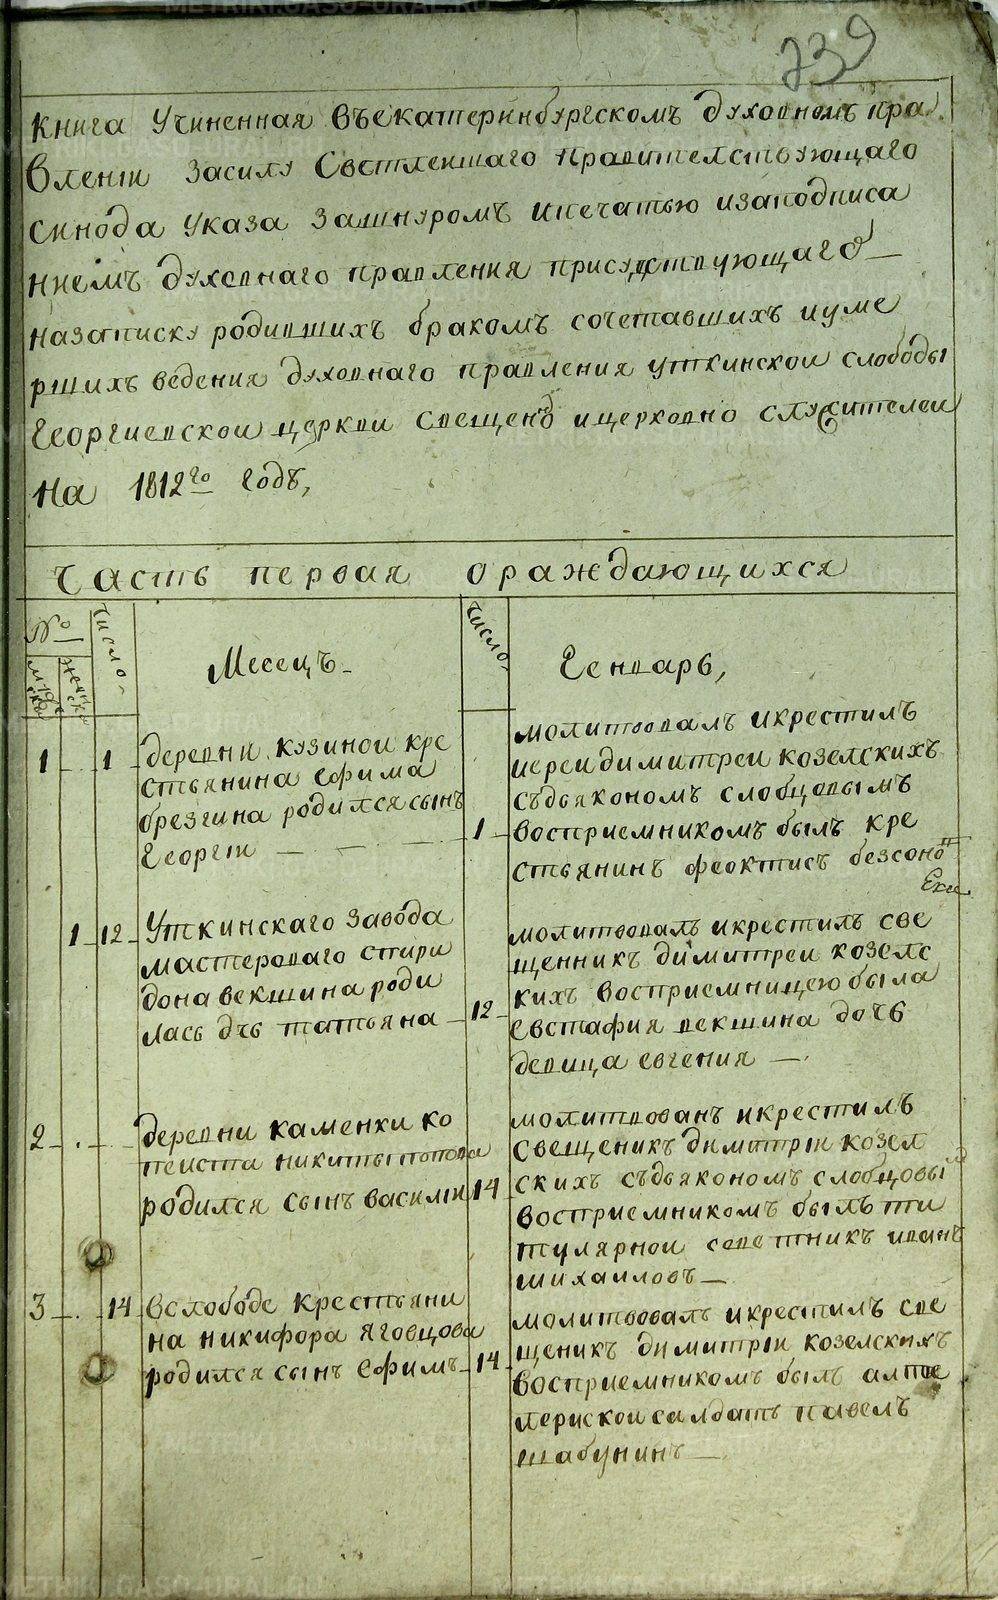 739
Книга Учиненная Въекатеринбургскомъ духовномъ пра
вленіи Засилу Светлеишаго правителствующаго
синода указа зашнуромъ ипечатью изаподписа
ниемъ духовнаго правления присудствующаго
назаписку родившихъ бракомъ сочетавшихъ иуме
ршихъ ведения духовнаго правления уткинскои слободы
Георгиевскои церкви священо ицерковно служителеи
На 1812го Годъ,
Часть первая ораждающихся
№ число Месецъ Генварь, число
мужеска женска
1 1 деревни кузинои кре
стьянина ефима
брезгина родился сынъ
Георгіи
1
молитвовалъ икрестилъ
иереи димитреи козелскихъ
съдьякономъ слобцовымъ
восприемникомъ былъ кре
стьянинъ феоктисъ безсоно
1 12 Уткинскаго завода
мастероваго спири
дона векшина роди
лась дчь татьяна
12
молитвовалъ икрестилъ све
щенникъ димитреи козелс
кихъ восприемницею была
евстафия векшина дочь
девица евгения
2 деревни каменки ко
пеиста никиты попова
родился сынъ василіи
14
молитвованъ икрестилъ
свещеникъ димитріи козел
скихъ съдьякономъ слобцовы
восприемникомъ былъ ти
тулярнои советникъ иванъ
михаиловъ
3 14 вслободе крестьяни
на никифора яговцова
родился сынъ ефимъ
14
молитвовалъ икрестилъ све
щеникъ димитріи козелскихъ
восприемникомъ былъ алтие
лерискои салдатъ павелъ
шабунинъ